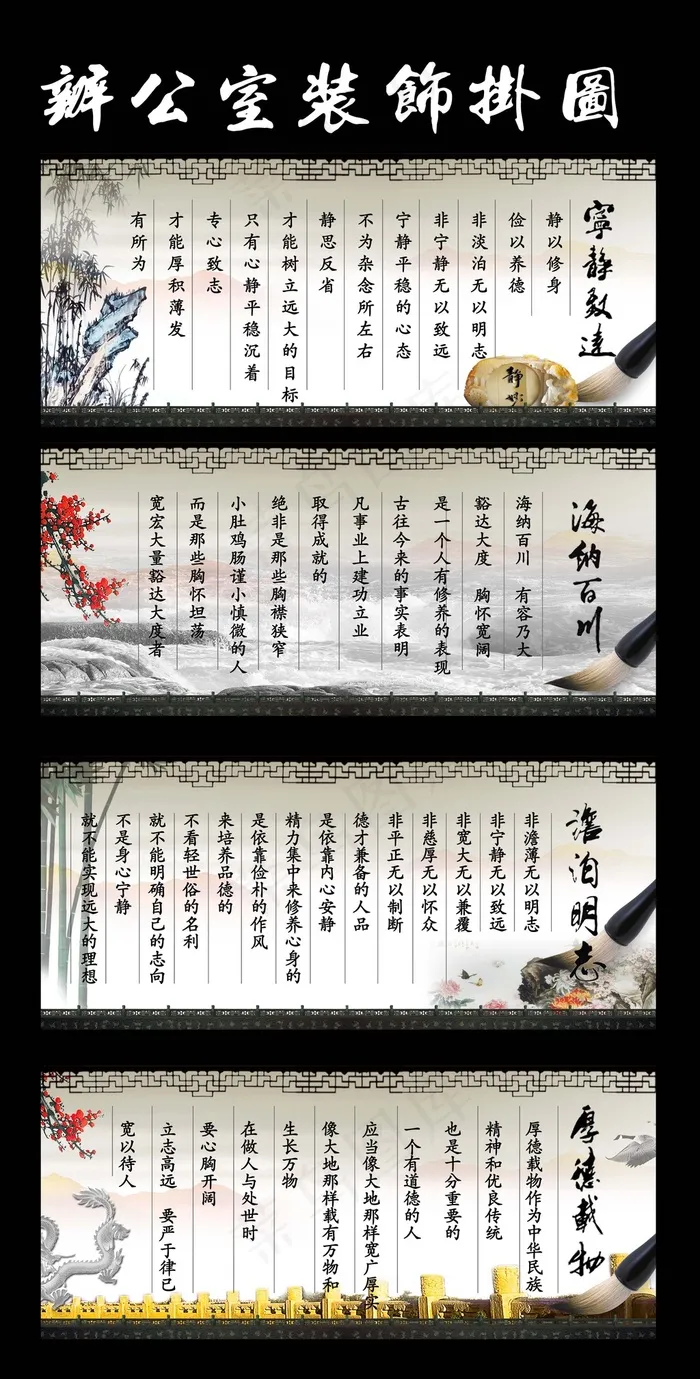 辦公室装飾掛圖
寧静致遠
静以修身
俭以养德
非淡泊无以明志
非宁静无以致远
宁静平稳的心态
不为杂念所左右
静思反省
才能树立远大的目标
只有心静平稳沉着
专心致志
才能厚积薄发
有所为
静
海纳百川
海纳百川 有容乃大
豁达大度 胸怀宽阔
是一个人有修养的表现
古往今来的事实表明
凡事业上建功立业
取得成就的
绝非是那些胸襟狭窄
小肚鸡肠谨小慎微的人
而是那些胸怀坦荡
宽宏大量豁达大度者
澹泊明志
非澹薄无以明志
非宁静无以致远
非宽大无以兼覆
非慈厚无以怀众
非平正无以制断
德才兼备的人品
是依靠内心安静
精力集中来修养心身的
是依靠俭朴的作风
来培养品德的
不看轻世俗的名利
就不能明确自己的志向
不是身心宁静
就不能实现远大的理想
厚德載物
厚德载物作为中华民族
精神和优良传统
也是十分重要的
一个有道德的人
应当像大地那样宽广厚实
像大地那样载有万物和
生长万物
在做人与处世时
要心胸开阔
立志高远 要严于律已
宽以待人